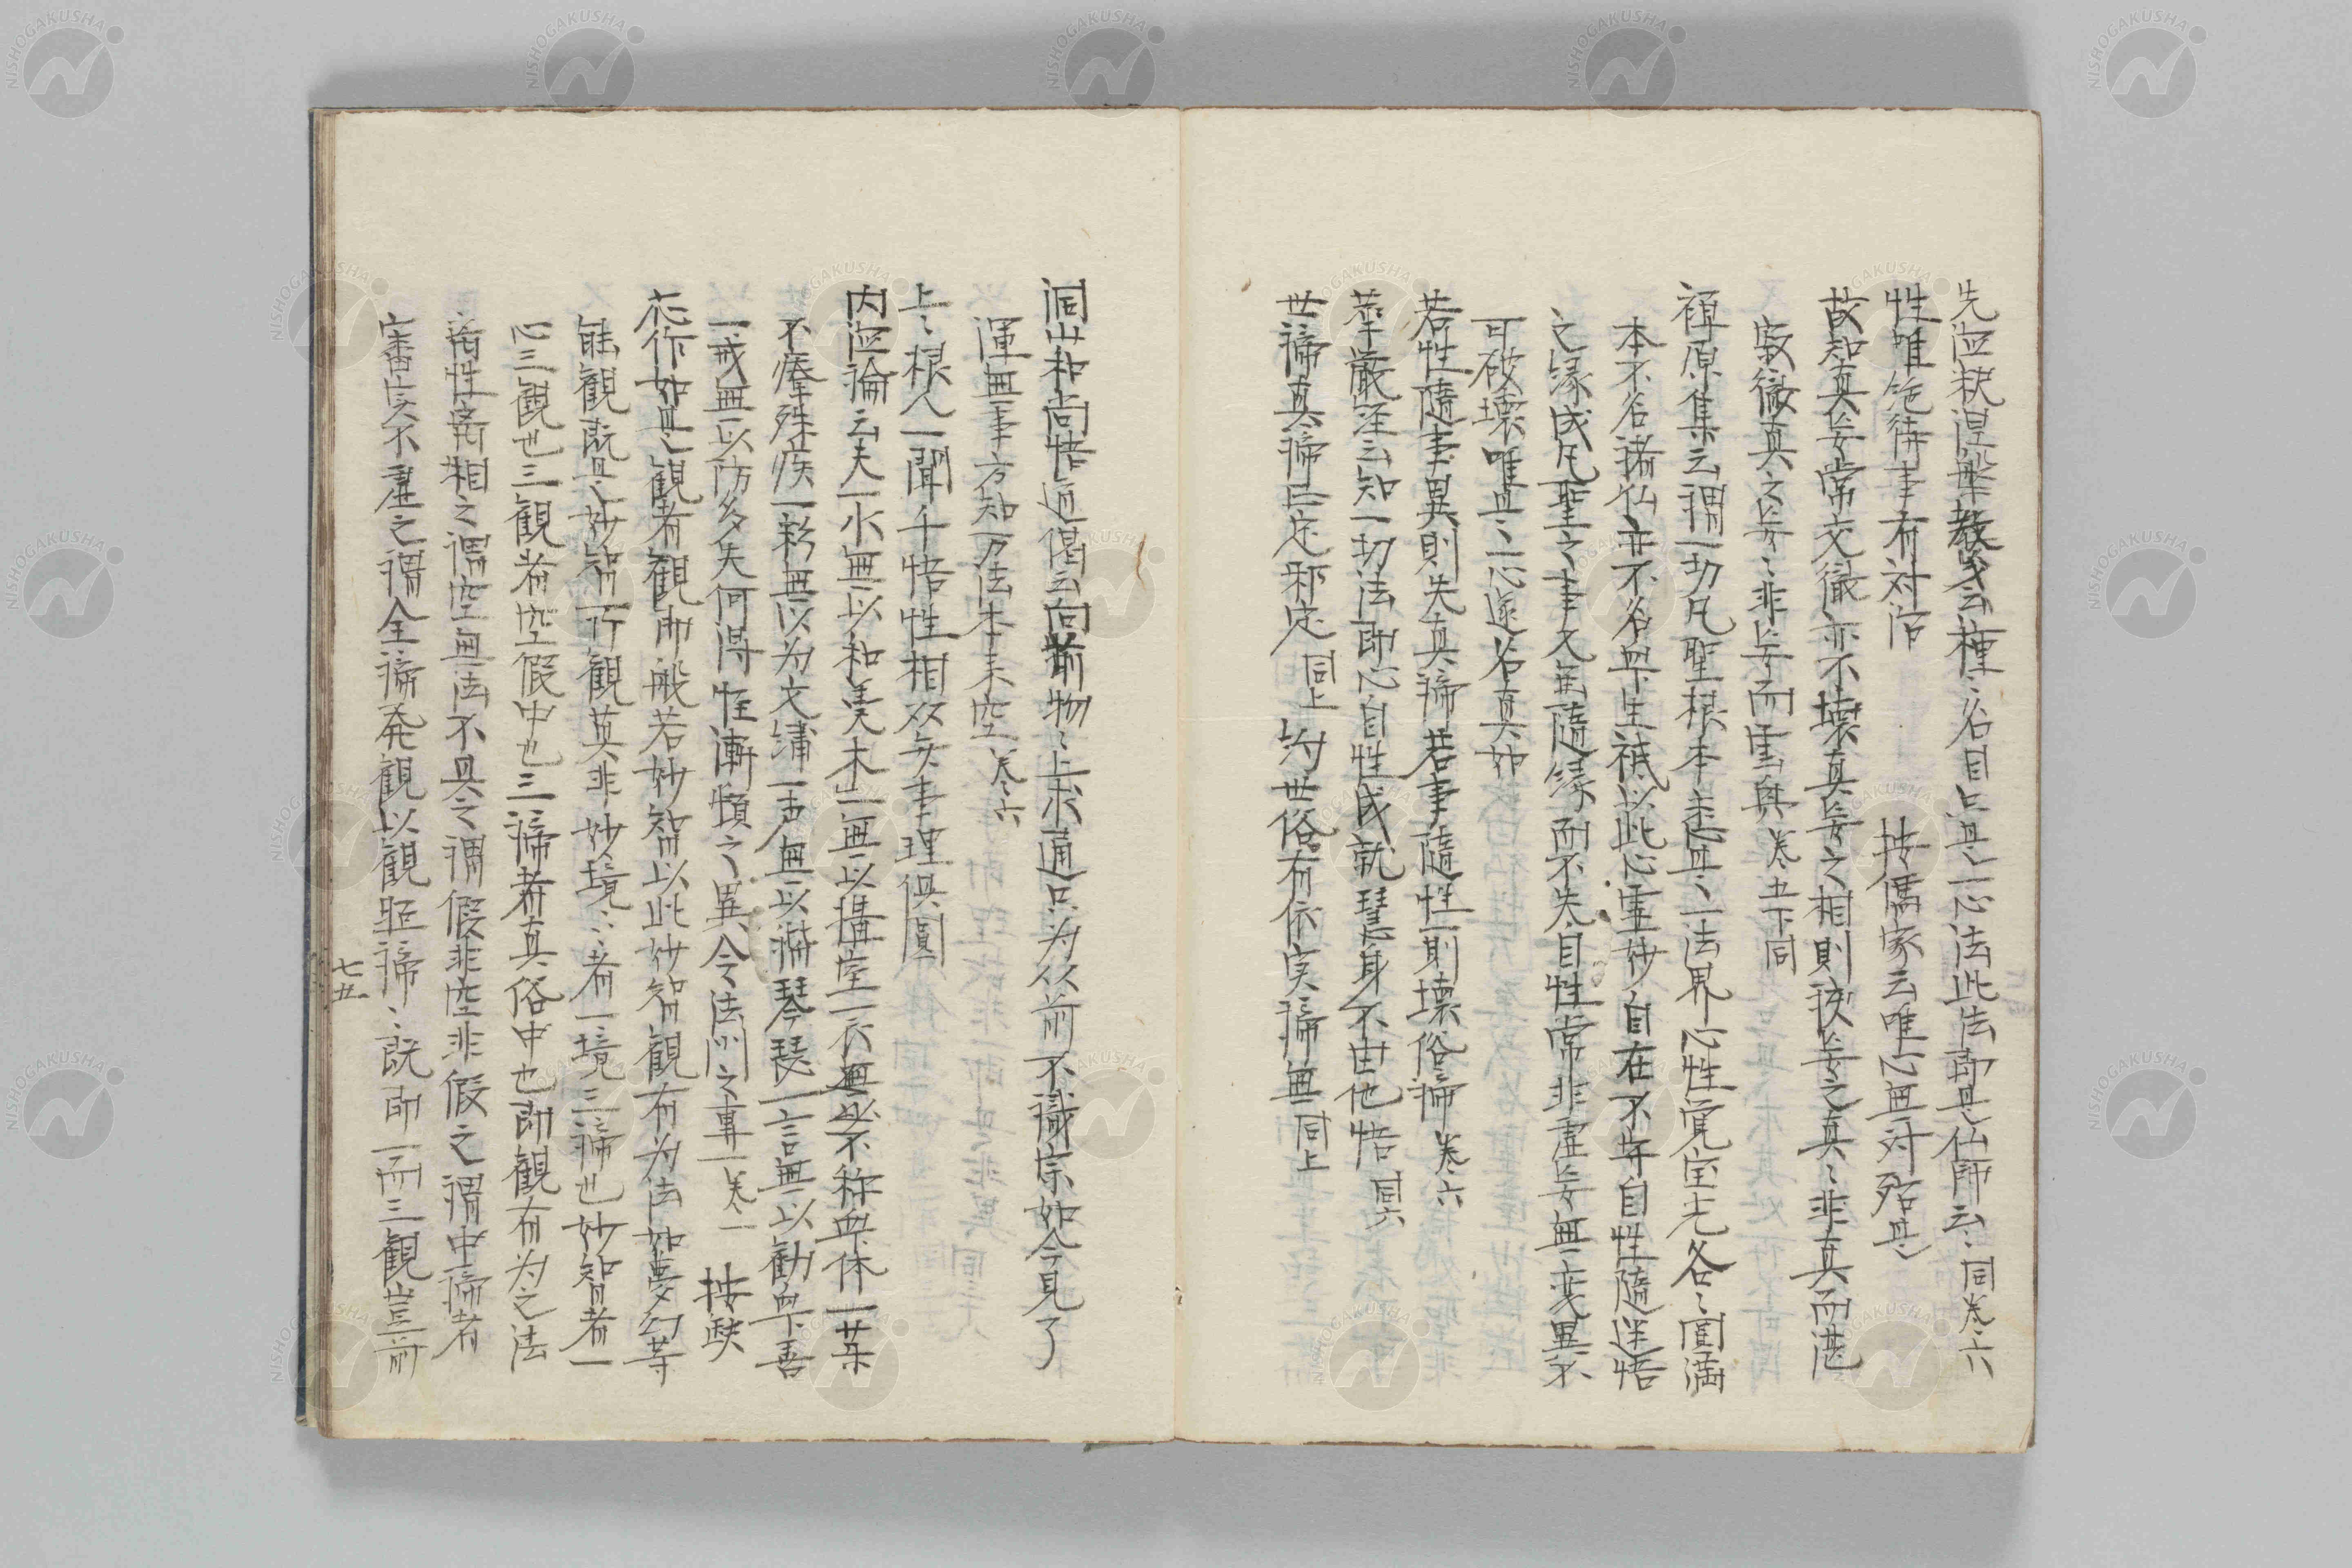 先徳釈涅槃教多種〻名目只是一心法此法即是仏師云〻同巻六
性唯絶待事有対治　按儒家云唯心無対殆是
故知真妄常交徹亦不壊真妄之相則彼妄之真〻非真而湛
寂徹真之妄〻非妄而雲興巻五下同
禅原集云謂一切凡聖根本悉是一法界心性覚宝光各〻円満
本不名諸仏亦不名衆生祇以此心霊妙自在不守自性随迷悟
之縁成凡聖之事又雖随縁而不失自性常非虚妄無変異不
可破壊唯是一心遂名真如
若性随事異則失真諦若事随性一則壊俗諦巻六
華厳経云知一切法即心自性成就慧身不由他悟同六
世諦真諦正定邪定同上約世俗有依実諦無同上
洞山和尚悟道偈云向前物〻上求通只为従前不識宗如今見了
渾無事方知万法本来空巻六
上〻根人一聞千悟性相双弁事理倶円
内徳論云夫一水無以和羹一木無以構室一衣無以不称衆体一薬
不療殊疾一彩無以为文繡一声無以諧琴瑟一言無以勧衆善
一戒無以防多失何得怪漸頓之異令法門之専一巻一　按疑
応作如是観者観即般若妙智以此妙智観有为法如夢幻等
能観既是妙智所観莫非妙境〻者一境三諦也妙智者一
心三観也三観者空仮中也三諦者真俗中也即観有为之法
離性離相之謂空無法不具之謂仮非空非仮之謂中諦者
審実不虚之謂全諦発観以観照諦〻既即一而三観豈前
七五